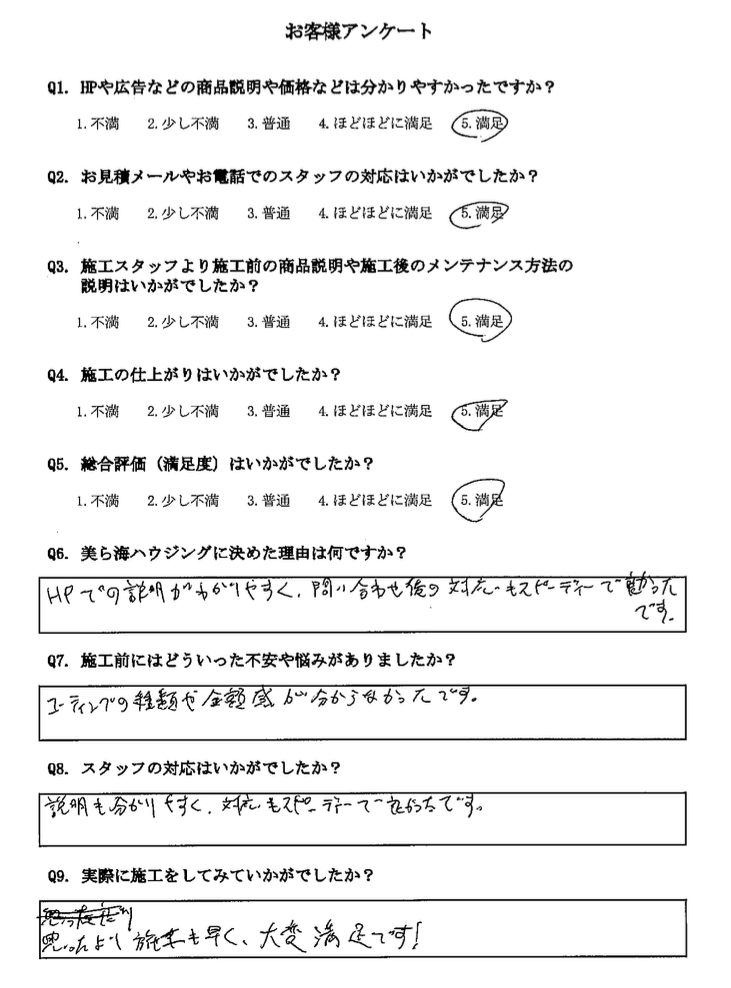 お客様アンケート
Q1. HPや広告などの商品説明や価格などは分かりやすかったですか？
1.不満 2.少し不満 3.普通 4.ほどほどに満足 5.満足
Q2. お見積メールやお電話でのスタッフの対応はいかがでしたか？
1.不満 2.少し不満 3.普通 4.ほどほどに満足 5.満足
Q3. 施工スタッフより施工前の商品説明や施工後のメンテナンス方法の
説明はいかがでしたか？
1.不満 2.少し不満 3.普通 4.ほどほどに満足 5.満足
Q4. 施工の仕上がりはいかがでしたか？
1.不満 2.少し不満 3.普通 4.ほどほどに満足 5.満足
Q5. 総合評価（満足度）はいかがでしたか？
1.不満 2.少し不満 3.普通 4.ほどほどに満足 5.満足
Q6. 美ら海ハウジングに決めた理由は何ですか？
HPでの説明がわかりやすく、問い合わせ後の対応もスピーディーで
です。
Q7. 施工前にはどういった不安や悩みがありましたか？
コーティングの種類や金額感が分からなかったです。
Q8. スタッフの対応はいかがでしたか？
説明も分かりやすく、対応もスピーディーで良かったです。
Q9. 実際に施工をしてみていかがでしたか？
思ったより施工も早く、大変満足です！